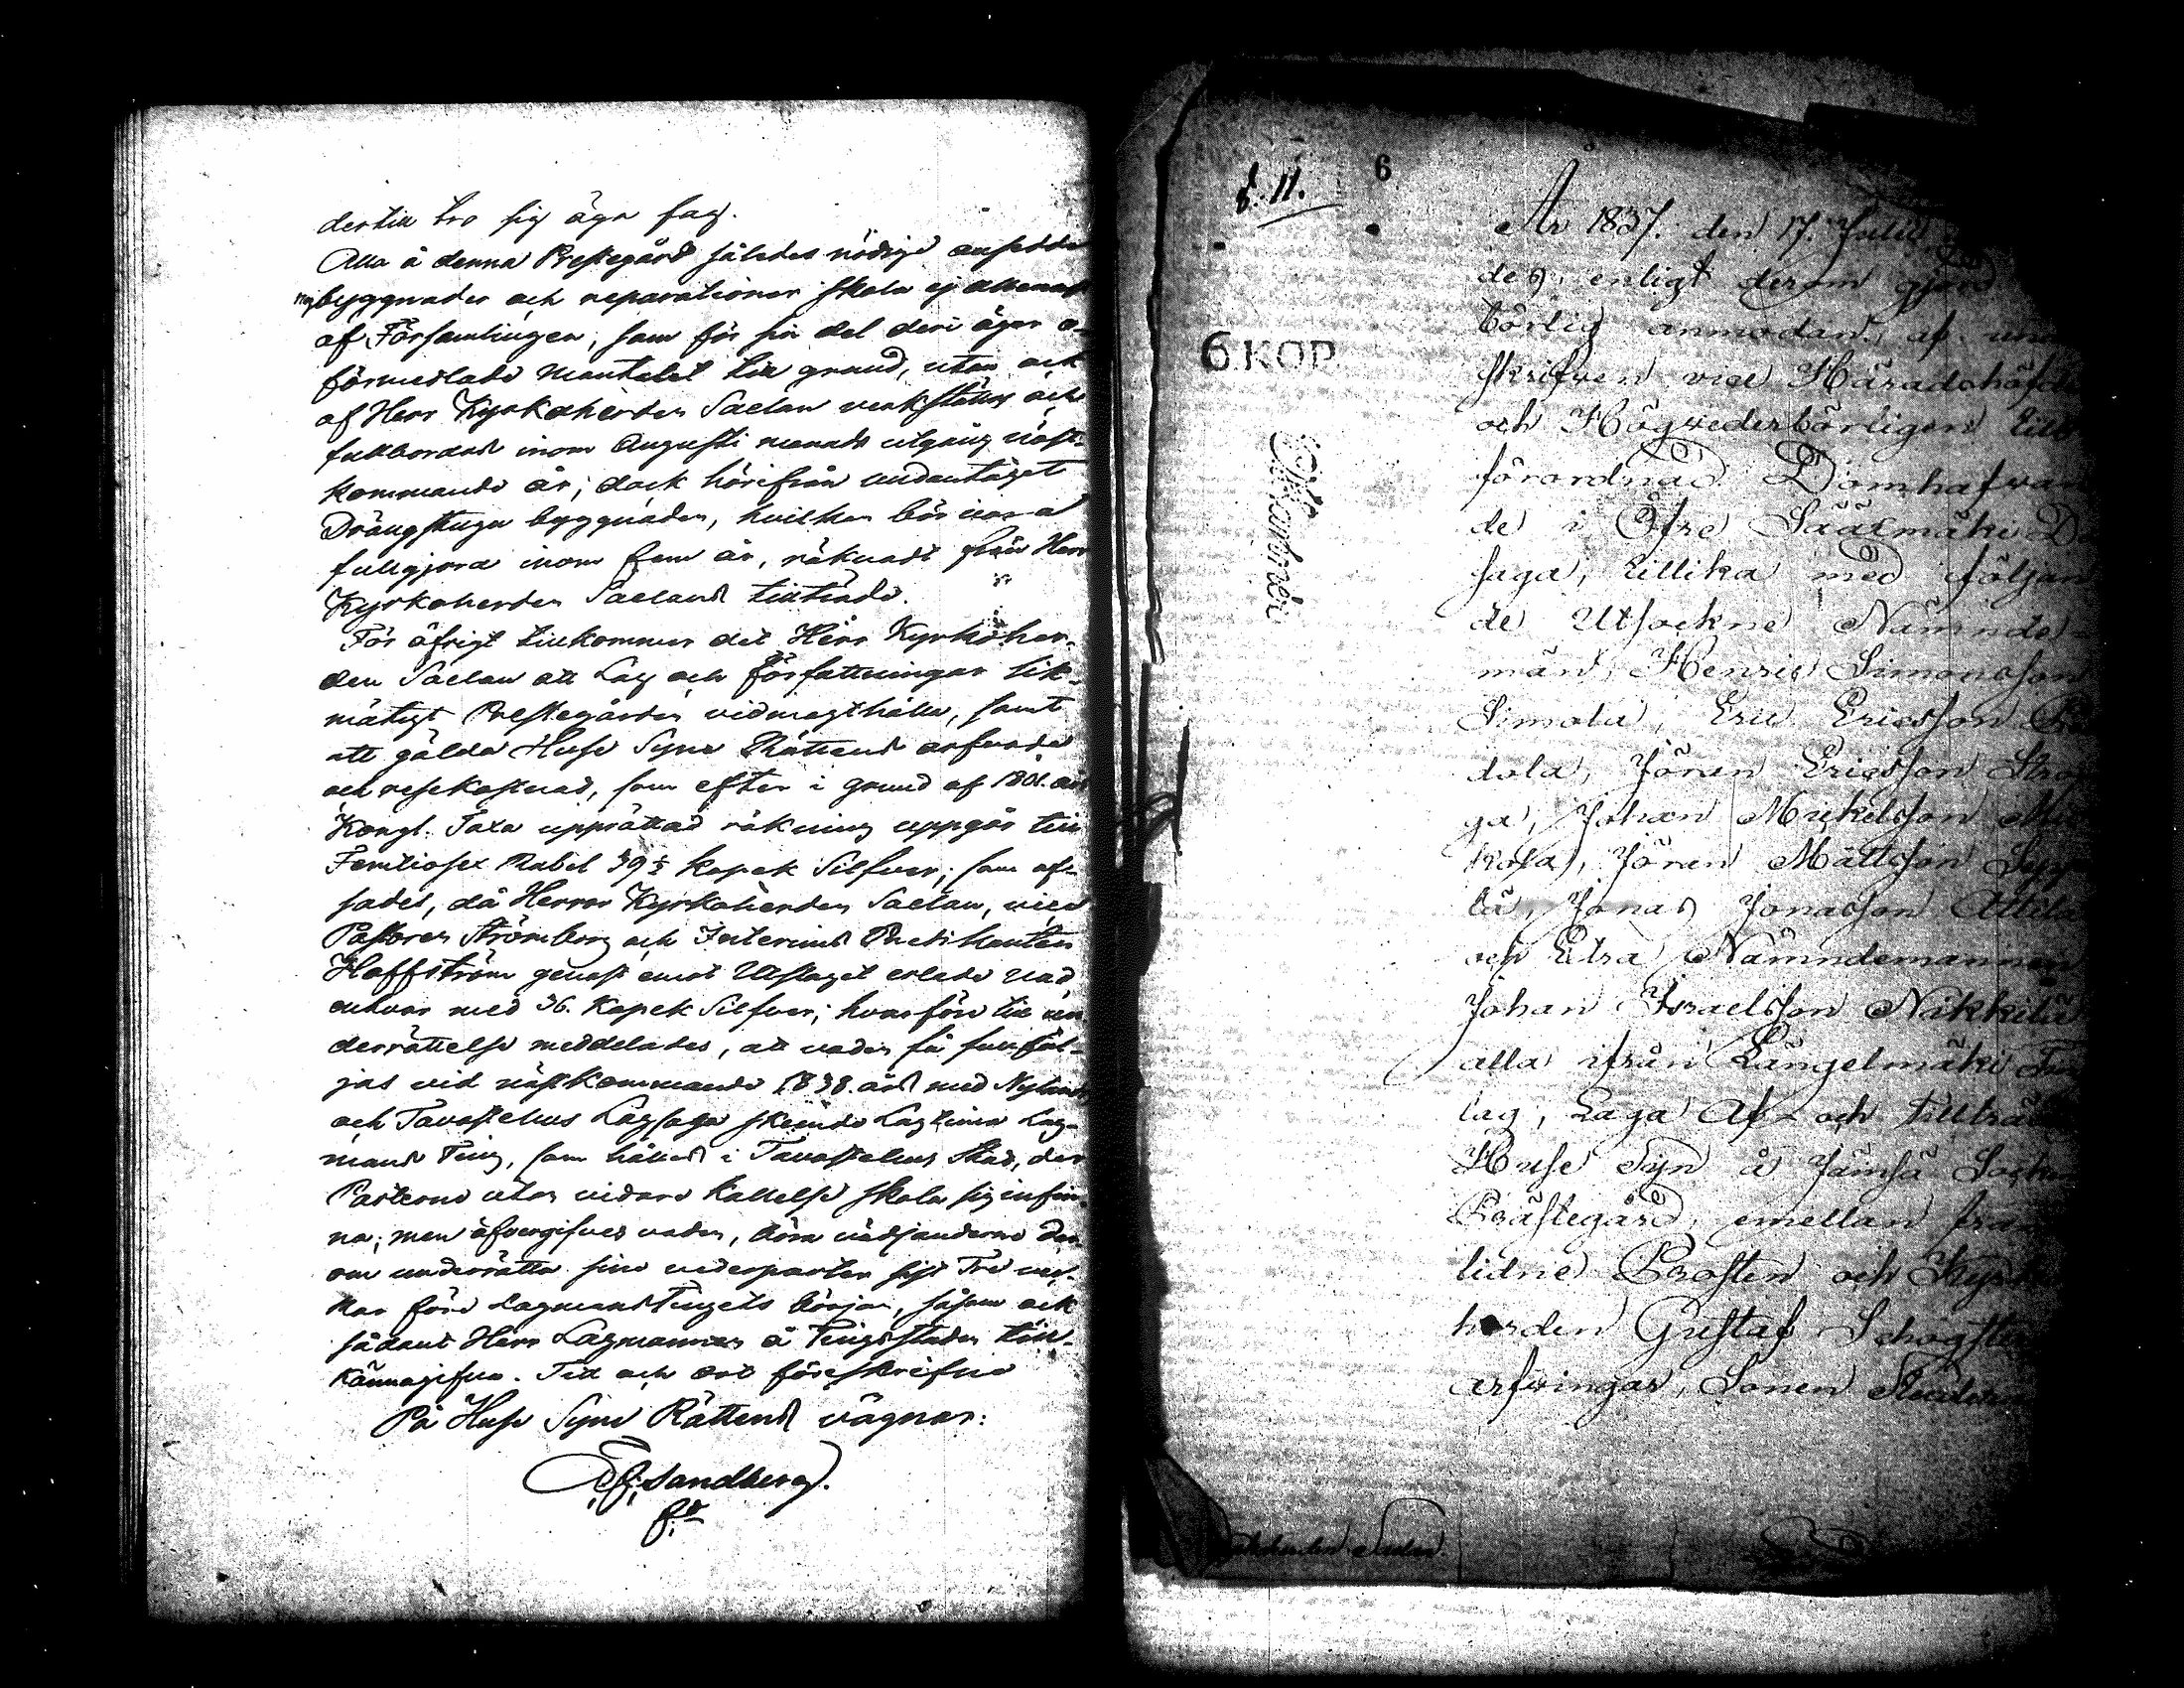 dertill tro sig äga fog.
Alla å denna Prestegård således nödige ansedde
nybyggnader och reparationer skola ej allenast
af Församlingen, som för sin del deri äger o-
förmedlade mantalet till grund, utan ock
af Herr Kyrkoherden Saelan verkställas och
fullbordas inom Augusti månads utgång näst-
kommande år; dock härifrån undantaget
Drängstugu byggnaden, hvilken bör vara
fullgjord inom fem år, räknadt från Herr
Kyrkoherden Saelans tillträde.
För öfrigt tillkommer det Herr Kyrkoher-
den Saelan att Lag och Författningar lik-
mätigt Prestegården vidmagthålla, samt
att gälda Huse Syns Rättens arfvode
och resekostnad, som efter i grund af 1801. års
Kongl. Taxa upprättad räkning uppgår till
Femtiosex Rubel 39 kopek Silfver; som af-
sades, då Herrar Kyrkoherden Saelan, vice
Pastoren Strömborg och Interims Predikanten
Hoffström genast emot Utslaget erlade vad
enhvar med 36. Kopek Silfver; hvarföre till un-
derrättelse meddelades, att vaden få fullföl-
jas vid nästkommande 1838. års med Nylands
och Tavastehus Lagsaga skeende Lagtima Lag-
mans Ting, som hålles i Tavastehus Stad, der
Parterne utan vidare kallelse skola sig infin-
na; men öfvergifves vaden, böra vädjanderne der-
om underrätta sine vederparter sist Tre vec-
kor före Lagmans Tingets början, såsom ock
sådant Herr Lagmannen å Tingsstaden till-
kännagifva. Tid och ort föreskrifne
På Huse Syns Rättens vägnar:
Sandberg.
§. 11.
6
6 KOP.
År 1837. den 17. Julii
des, enligt derom gjord
börlig anmodan, af un
skrifven vice Häradshöfd
och Högvederbörligen till
förordnad Domhafvan
de i Öfre Sääxmäki Do
saga, tillika med följan
de Utsockne Nämnde-
män, Henric Simonsson
Simola, Eric Ericsson
dola, Jöran Ericsson
ga, Johan Mickelsson
kola, Jöran Mattsson Sepp
lä, Jonas Jonasson Attila
och Extra Nämndemannen
Johan Israelsson Nikkilä
alla ifrån Längelmäki Tin
lag, Laga Af- och Tillträ
Huse Syn å Jämsä Socken
Prästegård, emellan fra
lidne Prosten och Kyrko
herden Gustaf
arfvingar, Sonen Studer